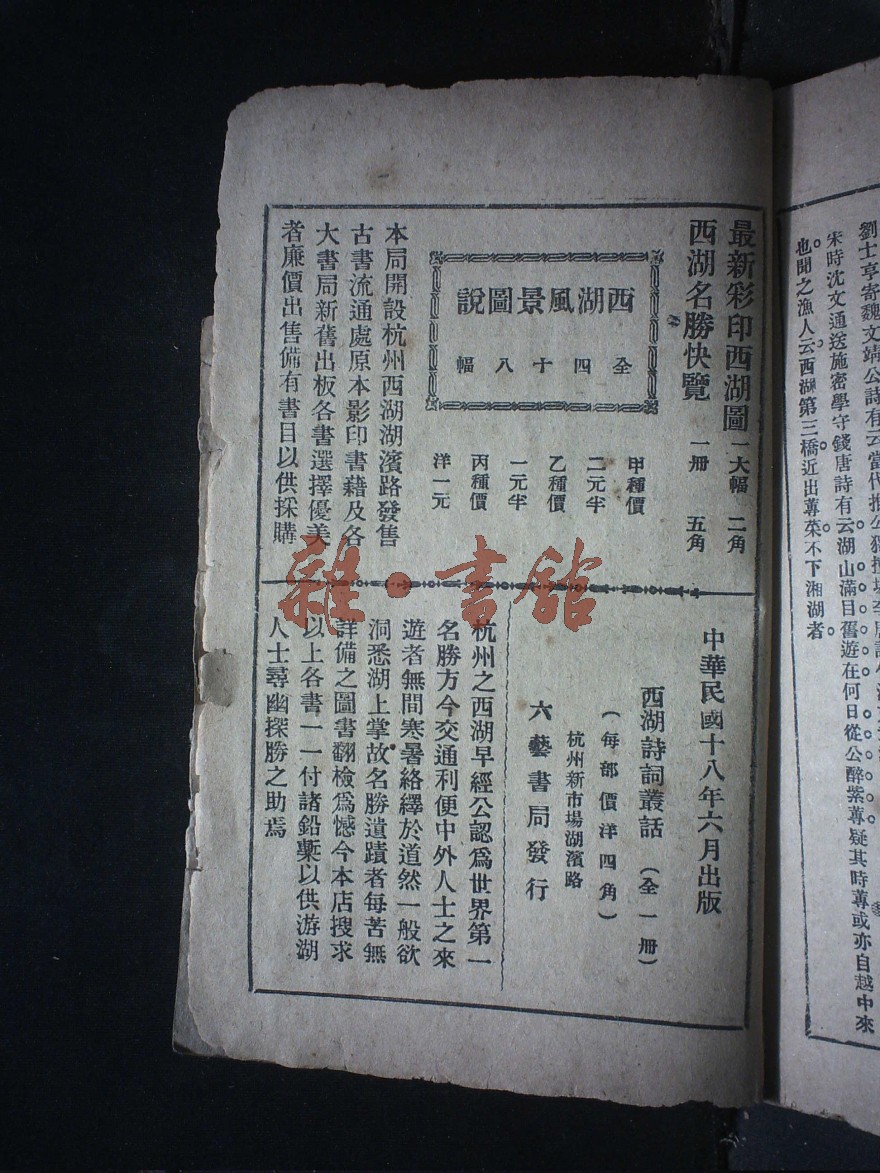 劉士亨寄魏文靖公詩有云當代推公獨擅場
宋時沈文通送施密學守錢唐詩有云湖山滿目舊遊在何日從公醉紫蓴疑其時蓴或亦自越中來
也聞之漁人云西湖第三橋近出蓴菜不下湘湖者
最新彩印西湖圖 一大幅 二角
西湖名勝快覽 一册 五角
西湖風景圖說
全四十八幅
甲種價
二元半
乙種價
一元半
丙種價
洋一元
本局開設杭州西湖湖濱路發售
古書流通處原本影印書藉及各
大書局新舊出板各書選擇優美
者廉價出售備有書目以供採購
中華民國十八年六月出版
西湖詩詞叢話 (全一册)
(每部價洋四角)
杭州新市場湖濱路
六藝書局發行
杭州之西湖早經公認爲世界第一
名勝方今交通利便中外人士之來
遊者無間寒暑絡繹於道然一般欲
洞悉湖上掌故名勝遺蹟者每苦無
詳備之圖書翻檢爲憾今本店搜求
以上各書一一付諸鉛槧以供游湖
人士尋幽探勝之助焉
雜·書館